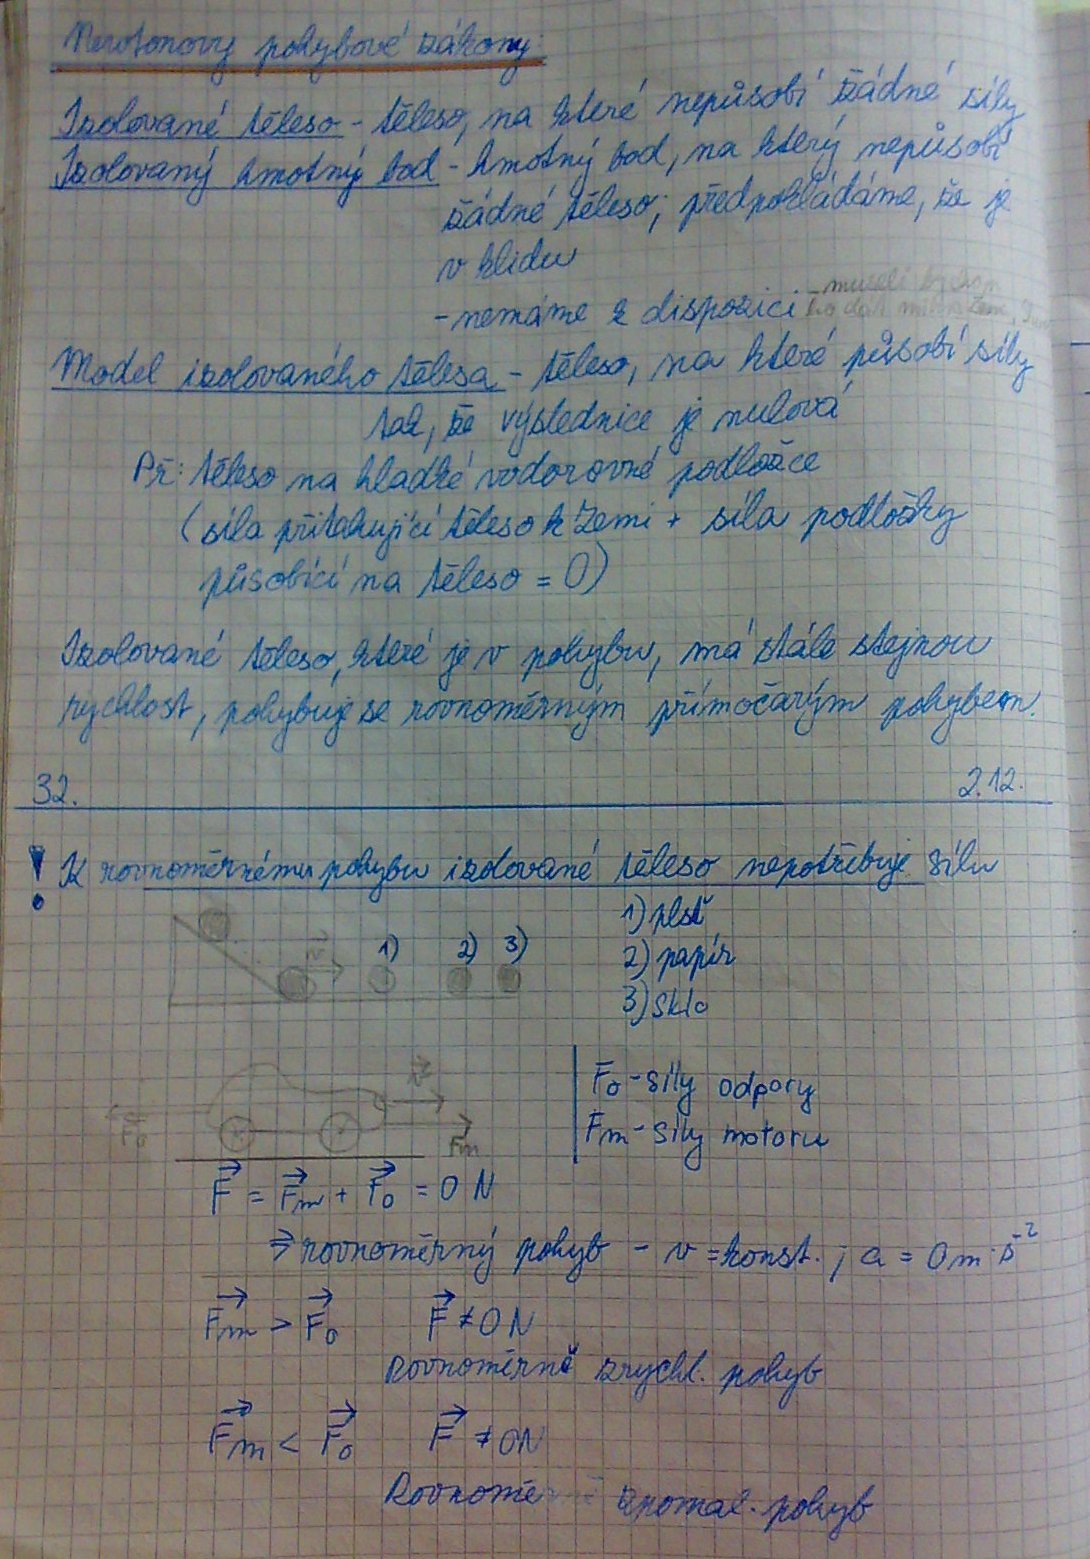 Newtonovy pohybové zákony:
Izolované těleso - těleso, na které nepůsobí žádné síly
Izolovaný hmotný bod - hmotný bod, na který nepůsobí
žádné těleso; předpokládáme, že je
v klidu
- nemáme k dispozici - museli bychom
ho dát mimo Zemi,
Model izolovaného tělesa - těleso, na které působí síly
tak, že výslednice je nulová
Př: těleso na hladké vodorovné podložce
(síla přitahující těleso k Zemi + síla podložky
působící na těleso = 0)
Izolované těleso, které je v pohybu, má stále stejnou
rychlost, pohybuje se rovnoměrným přímočarým pohybem.
32. 2.12.
! K rovnoměrnému pohybu izolované těleso nepotřebuje sílu
1) plsť
v 1) 2) 3)
2) papír
3) sklo
v
F₀ - síly odpory
F₀ Fm
Fm - síly motoru
F = Fm + F₀ = 0 N
⇒ rovnoměrný pohyb - v = konst. ; a = 0 m·s⁻²
Fm > F₀ F ≠ 0 N
Rovnoměrně zrychl. pohyb
Fm < F₀ F ≠ 0 N
Rovnoměrně zpomal. pohyb